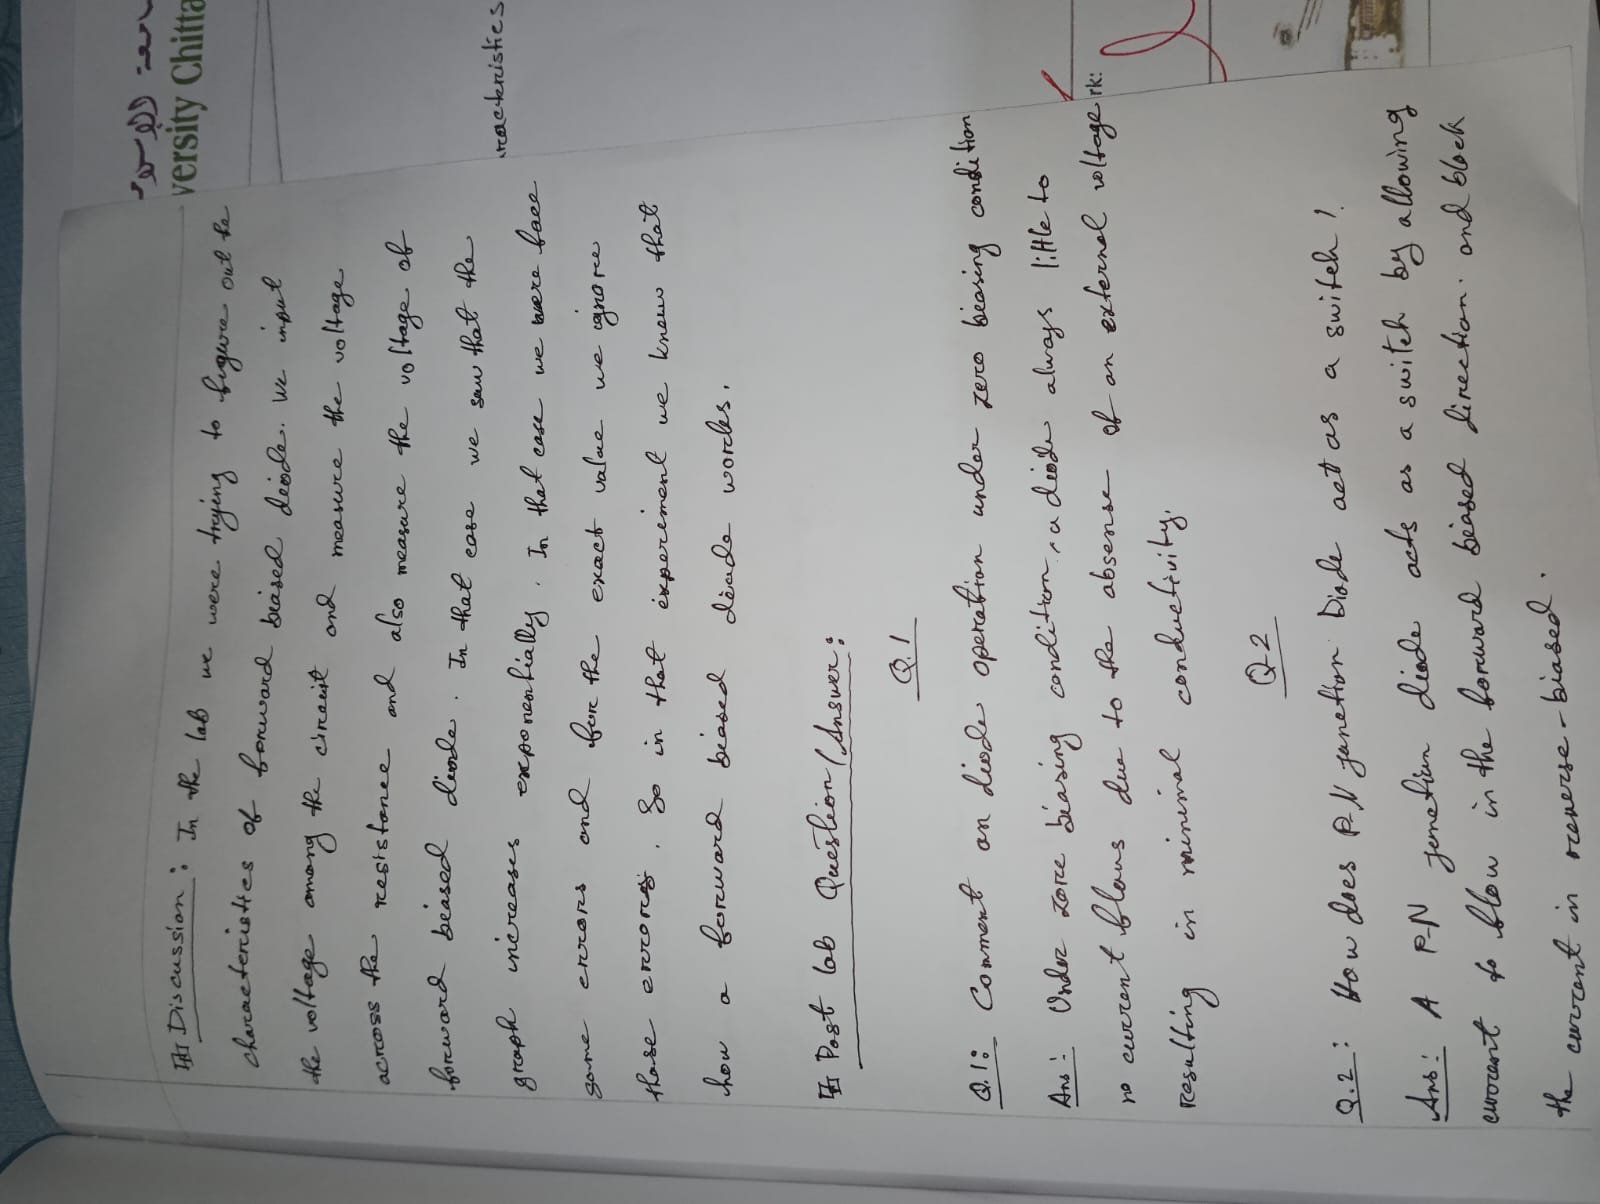 versity Chitta
racteristics
rk:
Discussion: In the lab we were trying to figure out the
characteristics of forward biased diode. we input
the voltage among the circuit and measure the voltage
across the resistance and also measure the voltage of
forward biased diode. In that case we saw that the
graph increases exponentially. In that case we were face
some errors and for the exact value we ignore
those errores. So in that experiment we know that
how a forward biased diode works.
Post lab Question/Answer:
Q.1
Q.1: Comment on diode operation under zero biasing condition
Ans: Under zore biasing condition, a diode always little to
no current flows due to the absense of an external voltage
resulting in minimal conductivity.
Q-2
Q.2: How does P.N junction Diode act as a switch?
Ans: A P-N junction diode acts as a switch by allowing
current to flow in the forward biased direction. and block
the current in reverse-biased.